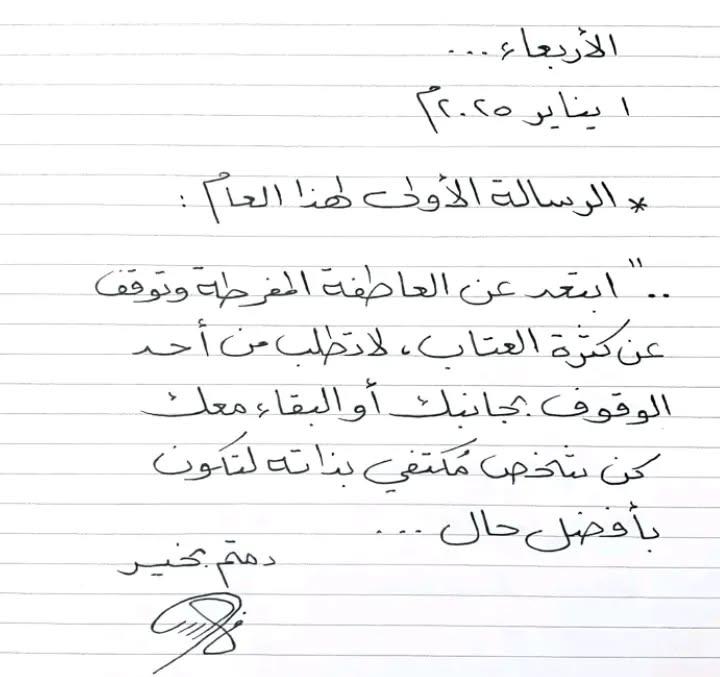 الأربعاء ...
١ يناير ٢٠٢٥م
* الرسالة الأولى لهذا العام :
.. " ابتعد عن العاطفة المفرطة وتوقف
عن كثرة العتاب ، لا تطلب من أحد
الوقوف بجانبك أو البقاء معك
كن شخص مُكتفي بذاته لتكون
بأفضل حال ...
دمتم بخير